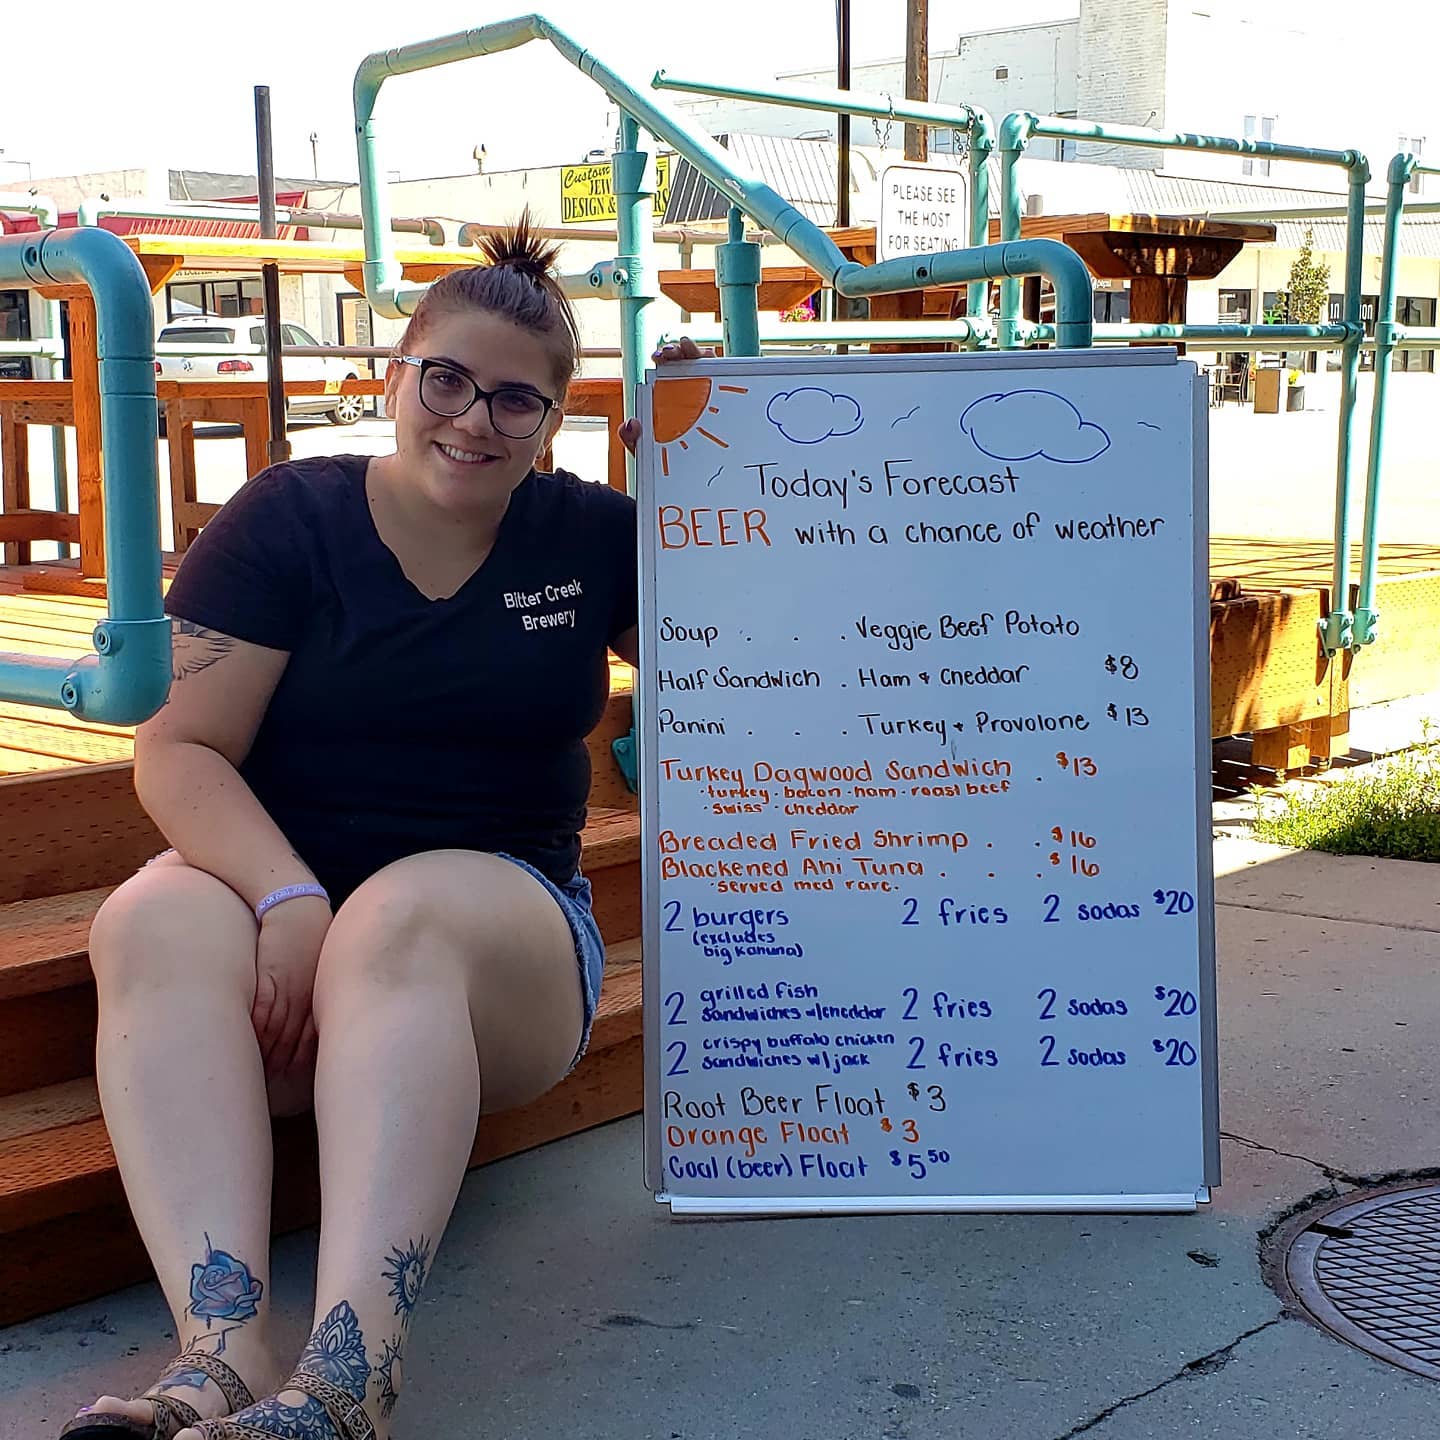 Custom
DESIGN &
PLEASE SEE
THE HOST
FOR SEATING
Bitter Creek
Brewery
Today's Forecast
BEER with a chance of weather
Soup . . . Veggie Beef Potato
Half Sandwich . Ham & Cheddar $8
Panini . . . Turkey & Provolone $13
Turkey Dagwood Sandwich . $13
· turkey · bacon · ham · roast beef
· swiss · cheddar
Breaded Fried Shrimp . . $16
Blackened Ahi Tuna . . . $16
· served med rare.
2 burgers 2 fries 2 sodas $20
(excludes
big kahuna)
2 grilled fish
sandwiches w/cheddar 2 fries 2 sodas $20
2 crispy buffalo chicken
sandwiches w/ jack 2 fries 2 sodas $20
Root Beer Float $3
Orange Float $3
Coal (beer) Float $5.50